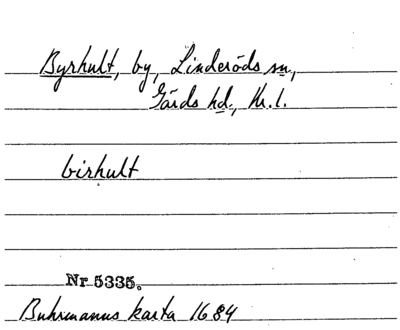 Byrhult, by, Linderöds sn,
Gärds hd., Kr. l.
birhult
Nr 5335.
Buhrmanns karta 1684